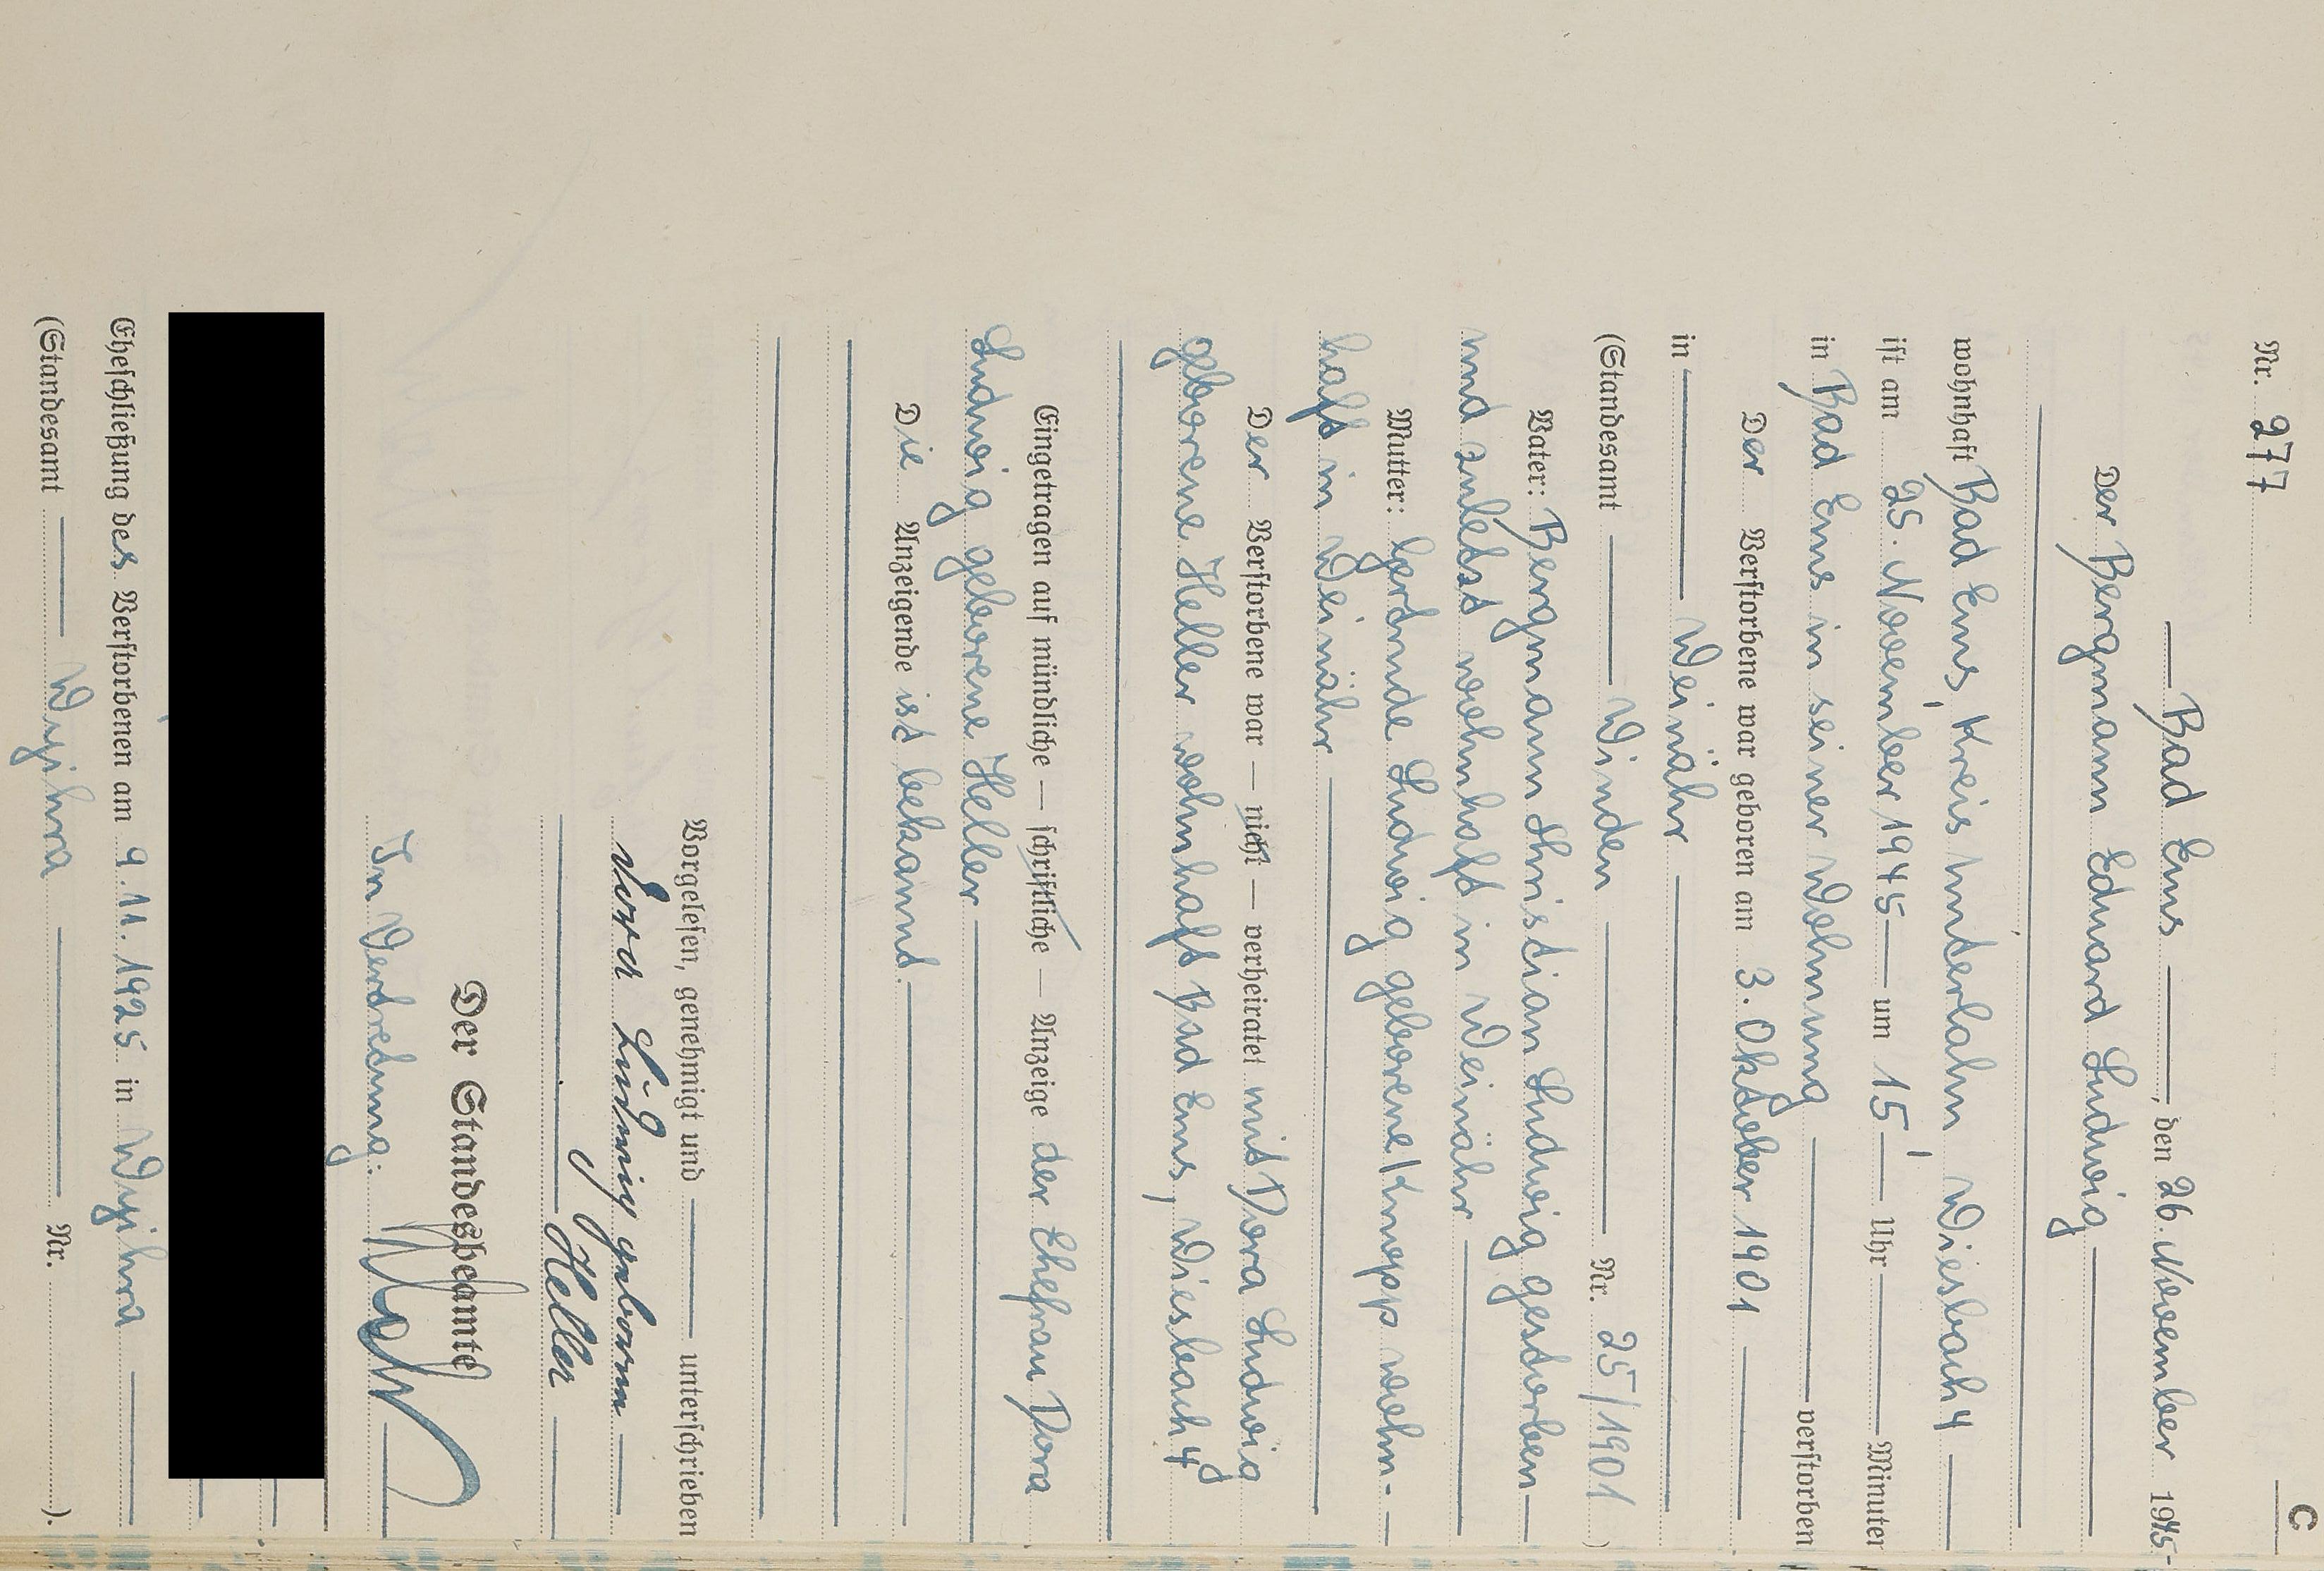 C
Nr. 277
Bad Ems, den 26. November 1945
Der Bergmann Eduard Ludwig
wohnhaft Bad Ems, Kreis Unterlahn, Wiesbach 4
ist am 25. November 1945 um 15 Uhr Minuten
in Bad Ems in seiner Wohnung verstorben
Der Verstorbene war geboren am 3. Oktober 1901
in Weinähr
(Standesamt Winden Nr. 25/1901)
Vater: Bergmann Christian Ludwig gestorben
und zuletzt wohnhaft in Weinähr
Mutter: Gertrude Ludwig geborene Knopp wohn-
haft in Weinähr
Der Verstorbene war — nicht — verheiratet mit Dora Ludwig
geborene Heller wohnhaft Bad Ems, Wiesbach 4
Eingetragen auf mündliche — schriftliche — Anzeige der Ehefrau Dora
Ludwig geborene Heller
Die Anzeigende ist bekannt.
Vorgelesen, genehmigt und unterschrieben
Dora Ludwig geborene
Heller
Der Standesbeamte
In Vertretung:
Eheschließung des Verstorbenen am 9.11.1925 in
(Standesamt Nr. ).